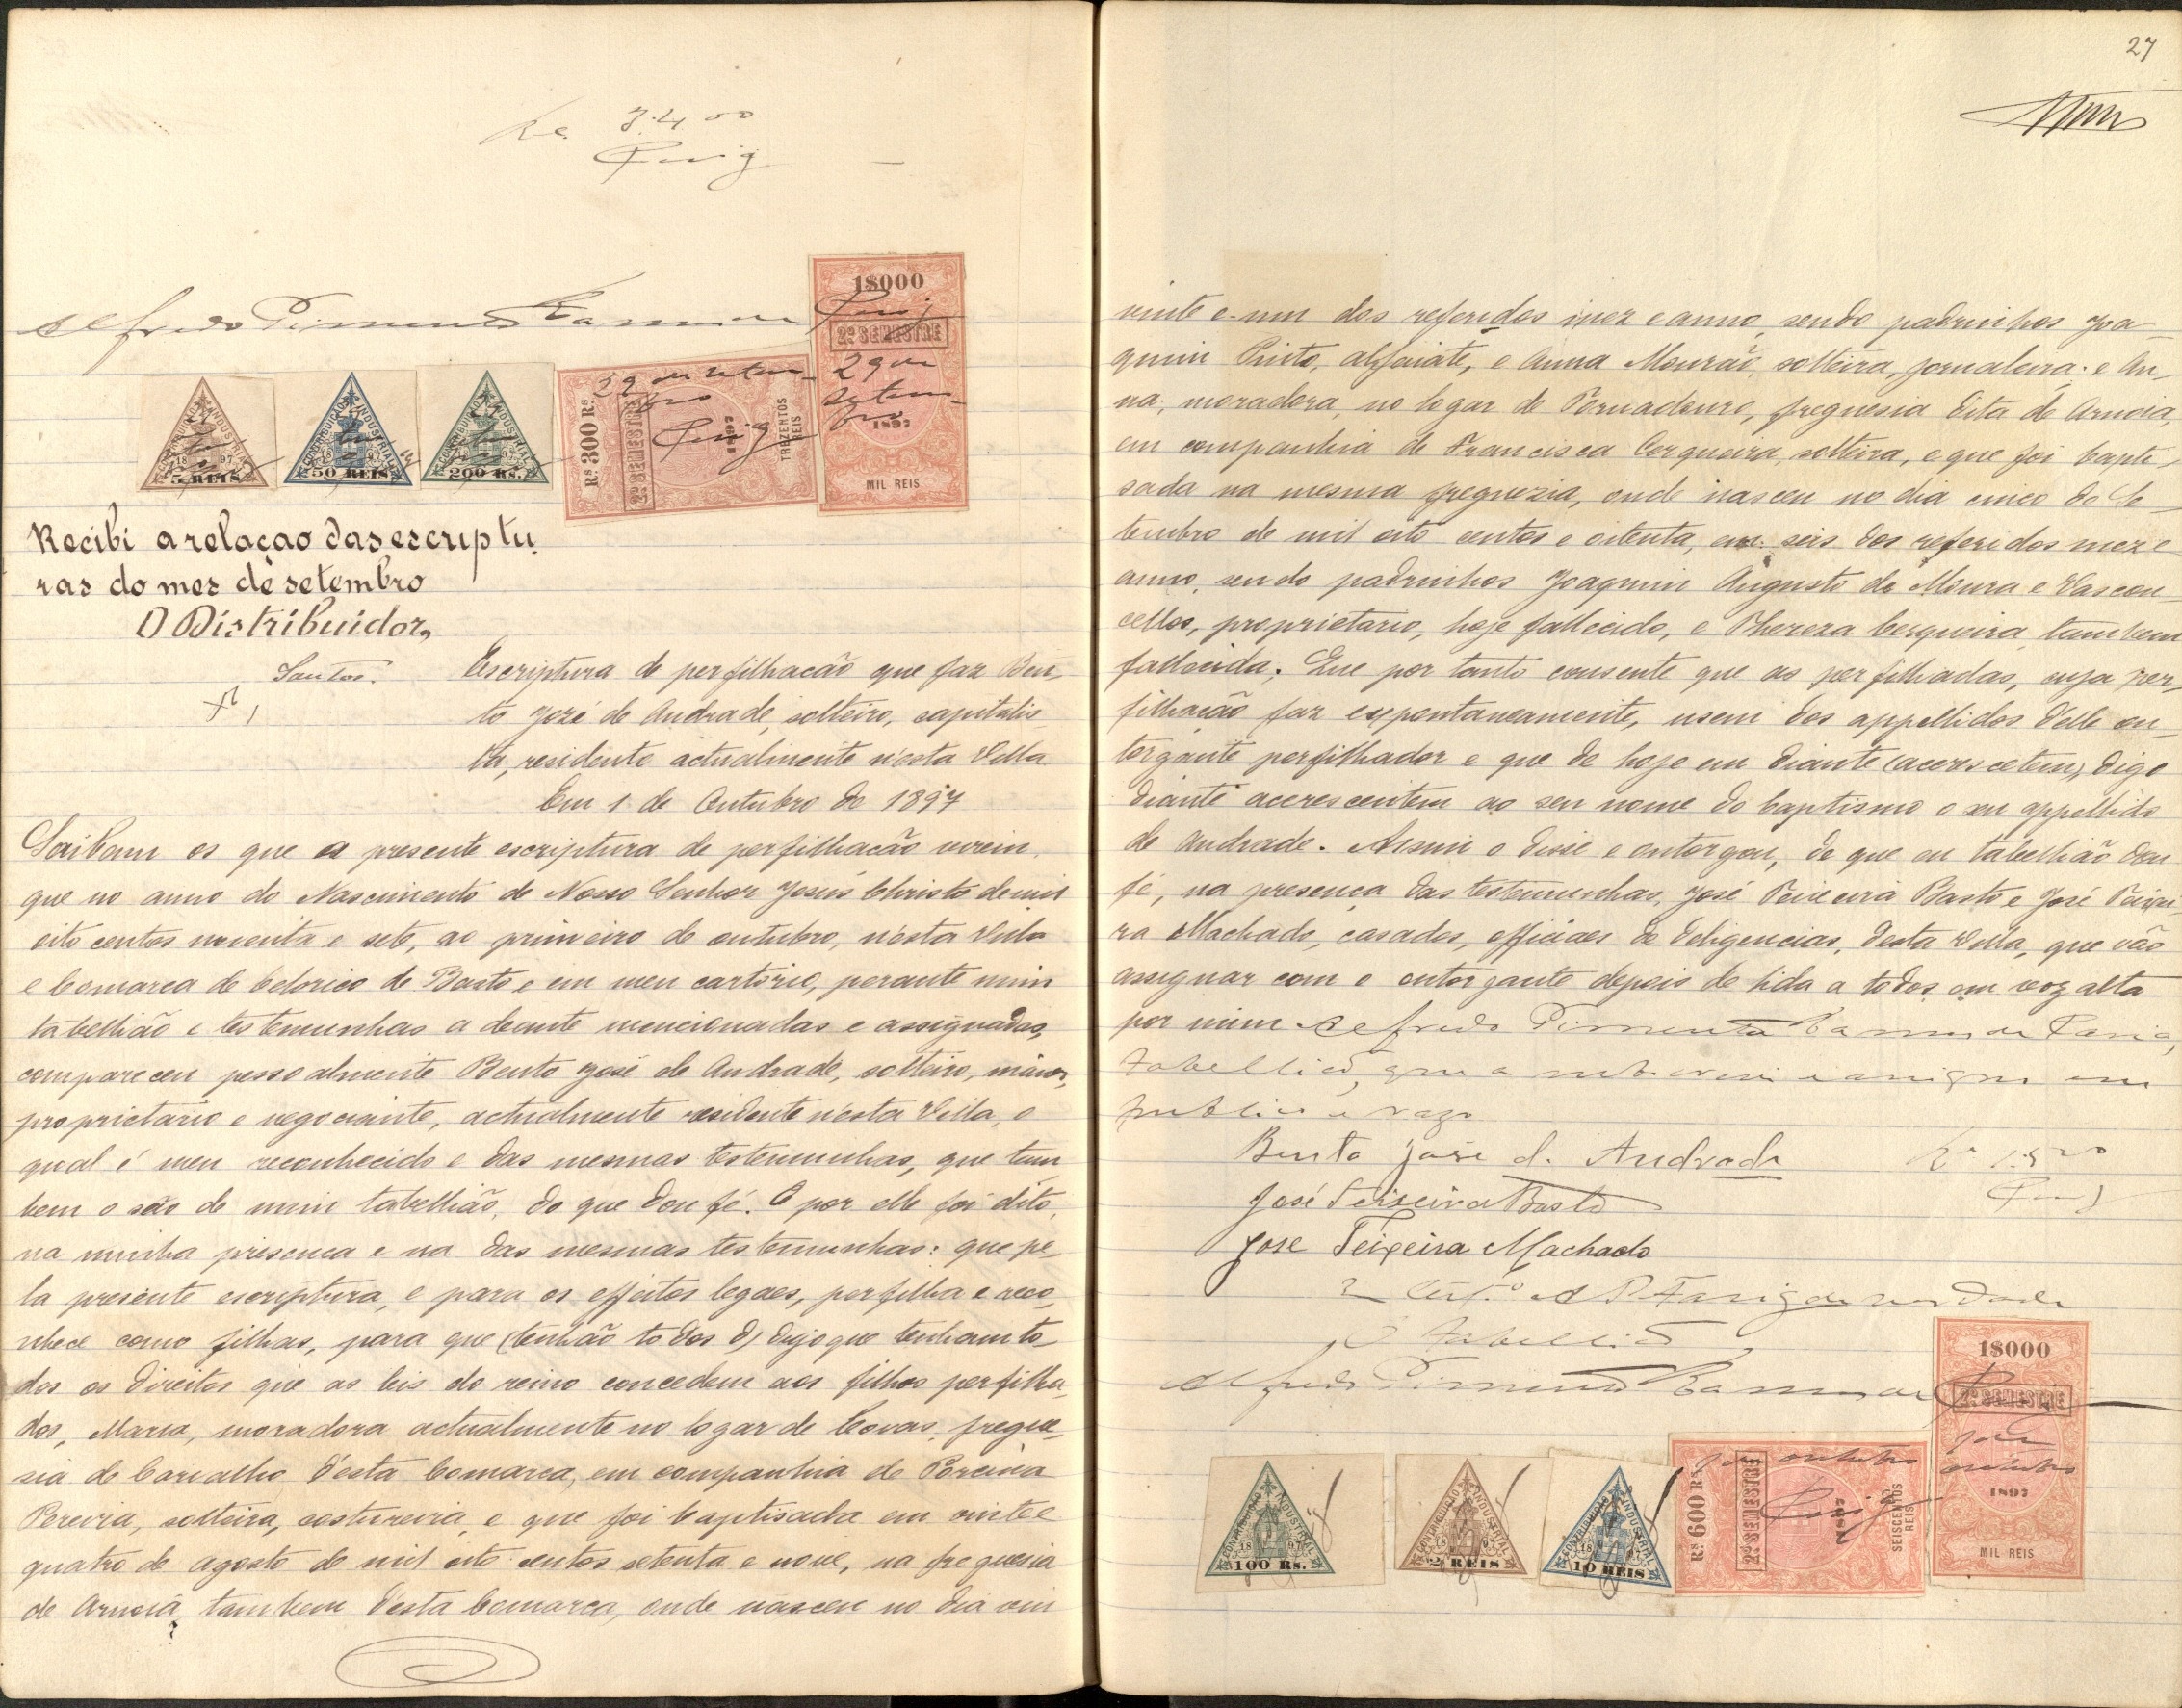 Alfredo Pimenta
1$000
2º SEMESTRE
29 de
setem-
bro
1897
MIL REIS
CONTRIBUIÇÃO INDUSTRIAL
1897
5 REIS
CONTRIBUIÇÃO INDUSTRIAL
1897
50 REIS
CONTRIBUIÇÃO INDUSTRIAL
1897
200 RS.
Rs 300 Rs.
2º SEMESTRE
29 de setem-
bro
1897
TREZENTOS
REIS
Recibi a relaçao das escriptu
ras do mes de setembro
O Distribuidor,
Santos.
Escriptura de perfilhacão que faz Ben-
to José de Andrade, solteiro, capitalis-
ta, residente actualmente n'esta Villa
Em 1 de Outubro de 1897
Saibam os que a presente escriptura de perfilhacão virem,
que no anno do Nascimento de Nosso Senhor Jesus Christo de mil
oito centos noventa e sete, ao primeiro de outubro, n'esta Villa
e Comarca de Celorico de Basto e em meu cartorio, perante mim
tabellião e testemunhas a deante mencionadas e assignadas,
compareceu pessoalmente Bento José de Andrade, solteiro, maior,
proprietario e negociante, actualmente residente n'esta Villa, o
qual é meu reconhecido e das mesmas testemunhas, que tam
bem o são de mim tabellião, do que dou fé. E por elle foi dito,
na minha presenca e na das mesmas testemunhas: que pe-
la presente escriptura, e para os effeitos legaes, perfilha e reco-
nhece como filhas, para que (tenhão todos d) digo que tenham to-
dos os direitos que as leis do reino concedem aos filhos perfilha-
dos, Maria, moradora actualmente no logar de Covas, fregue-
sia de Carvalho, d'esta Comarca, em companhia de Porcina
Pereira, solteira, costureira, e que foi baptisada em vinte e
quatro de agosto de mil oito centos setenta e nove, na freguesia
de Arnoia, tambem d'esta Comarca, onde nasceu no dia vin
27
vinte e um dos referidos mez e anno, sendo padrinhos Joa-
quim Pinto, alfaiate, e Anna Mourão, solteira, jornaleira; e An-
na, moradora, no logar de Pornadouro, freguesia dita de Arnoia,
em companhia de Francisca Cerqueira, solteira, e que foi bapti-
sada na mesma freguezia, onde nasceu no dia cinco de Se-
tembro de mil oito centos e oitenta, em seis dos referidos mez e
anno, sendo padrinhos Joaquim Augusto de Moura e Vascon-
cellos, proprietario, hoje fallecido, e Thereza Cerqueira, tambem
fallecida; Que por tanto consente que as perfilhadas, cuja per-
filhacão faz expontaneamente, usem dos appellidos d'elle ou-
torgante perfilhador e que de hoje em diante (acerescetem) digo
diante accrescentem ao seu nome do baptismo o seu appellido
de Andrade. Assim o disse e outorgou, do que eu tabellião dou
fé, na presença das testemunhas, José Teixeira Basto e José Teixei-
ra Machado, casados, officiaes de deligencias, desta Villa, que vão
assignar com o outorgante depois de lida a todos em voz alta
por mim Alfredo Pimenta Faria,
tabellião, que a subscrevi e assigno em
publico e razo
Bento José d. Andrade
José Teixeira Basto
Jose Teixeira Machado
O tabellião
Alfredo Pimenta
1$000
2º SEMESTRE
outubro
1897
MIL REIS
CONTRIBUIÇÃO INDUSTRIAL
1897
100 RS.
CONTRIBUIÇÃO INDUSTRIAL
1897
2 REIS
CONTRIBUIÇÃO INDUSTRIAL
1897
10 REIS
Rs 600 Rs.
2º SEMESTRE
outubro
1897
SEISCENTOS
REIS